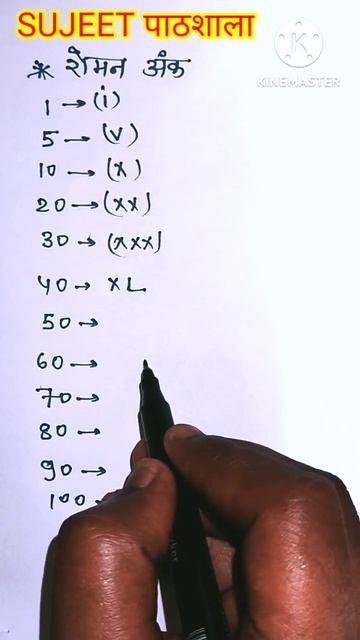 SUJEET पाठशाला
KINEMASTER
* रोमन अंक
1 → (i)
5 → (v)
10 → (x)
20 → (xx)
30 → (xxx)
40 → XL
50 →
60 →
70 →
80 →
90 →
100